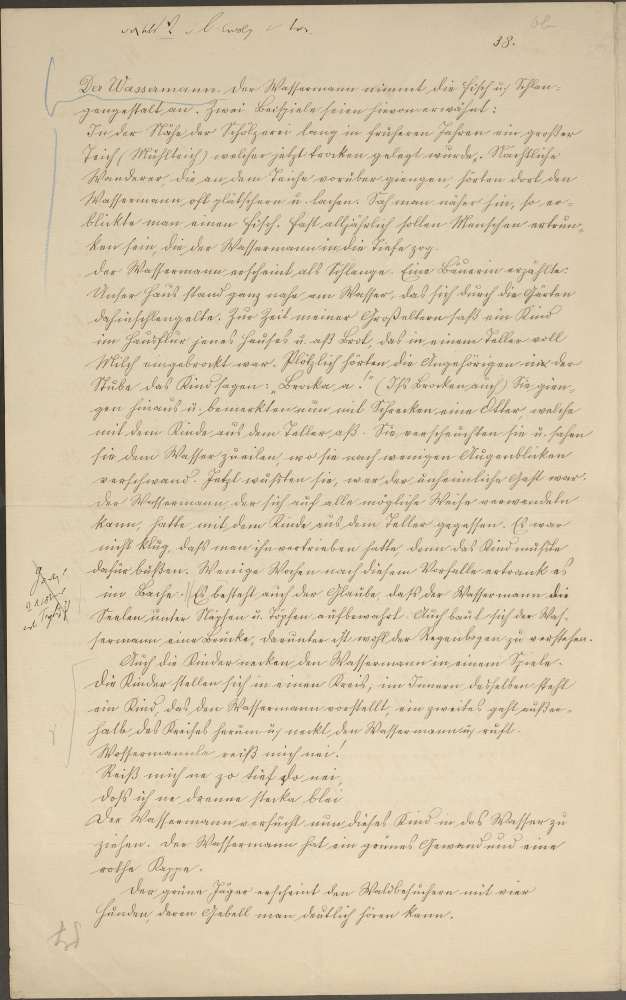 38.
Der Wassermann. Der Wassermann nimmt die Fisch u. Schlan-
gengestalt an. Zwei Beispiele seien hievon erwähnt:
In der Nähe der Scholzerei lang in früheren Jahren ein großer
Teich (Mühlteich) welcher jetzt trocken gelegt wurde. Nächtliche
Wanderer, die an dem Teiche vorüber giengen, hörten dort den
Wassermann oft plätschern u. lachen. Sah man näher hin, so er-
blickte man einen Fisch. Fast alljährlich sollen Menschen ertrun-
ken sein die der Wassermann in die Tiefe zog.
Der Wassermann erscheint als Schlange. Eine Bäuerin erzählte:
Unser Haus stand ganz nahe am Wasser, das sich durch die Gärten
dahinschlengelte. Zur Zeit meiner Großeltern saß ein Kind
im Hausflur jenes Hauses u. aß Brot, das in einem Teller voll
Milch eingebrockt war. Plötzlich hörten die Angehörigen in der
Stube das Kind sagen: „Brocka a!" (Iß Brocken auch) Sie gien-
gen hinaus u. bemerkten nun mit Schrecken eine Otter, welche
mit dem Kinde aus dem Teller aß. Sie verscheuchten sie u. sahen
sie dem Wasser zueilen, wo sie nach wenigen Augenblicken
verschwand. Jetzt wußten sie, wer der unheimliche Gast war.
Der Wassermann, der sich auf alle mögliche Weise verwandeln
kann, hatte mit dem Kinde aus dem Teller gegessen. Es war
nicht klug, daß man ihn vertrieben hatte, denn das Kind mußte
dafür büßen. Wenige Wochen nach diesem Vorfalle ertrank es
im Bache. Es besteht auch der Glaube, daß der Wassermann die
Seelen unter Näpfen u. Töpfen aufbewahrt. Auch baut sich der Was-
sermann eine Brücke, darunter ist wohl der Regenbogen zu verstehen.
Auch die Kinder necken den Wassermann in einem Spiele.
Die Kinder stellen sich in einen Kreis, im Innern desselben steht
ein Kind, das den Wassermann vorstellt, ein zweites geht außer-
halb des Kreises herum u. neckt den Wassermann u. ruft:
Wossermannla reiß mich nei!
Reiß mich ne zo tief do nei,
Doß ich ne dranne stecka blei
Der Wassermann versucht nun dieses Kind in das Wasser zu
ziehen. Der Wassermann hat ein grünes Gewand und eine
rothe Kappe.
Der grüne Jäger erscheint den Waldbesuchern mit vier
Hunden, deren Gebell man deutlich hören kann.